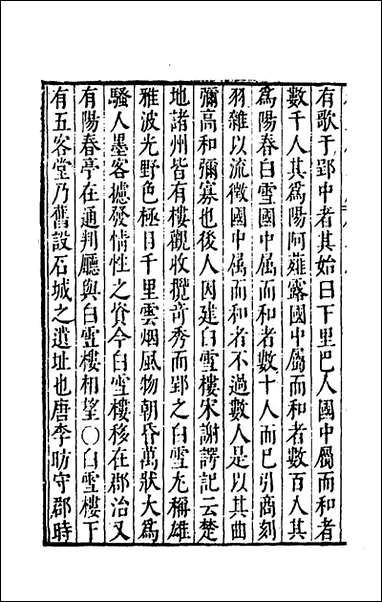 有歌于郢中者其始曰下里巴人國中屬而和者
數千人其爲陽阿薤露國中屬而和者數百人其
爲陽春白雪國中属而和者數十人而已引商刻
羽雜以流徴國中属而和者不過數人是以其曲
彌高和彌寡也後人因建白雪樓宋謝諤記云楚
地諸州皆有樓觀收攬竒秀而郢之白雪尤稱雄
雅波光野色極目千里雲烟風物朝昏萬狀大爲
騷人墨客攄發情性之資今白雪樓移在郡治又
有陽春亭在通判廳與白雪樓相望〇白雪樓下
有五客堂乃舊設石城之遺址也唐李昉守郡時